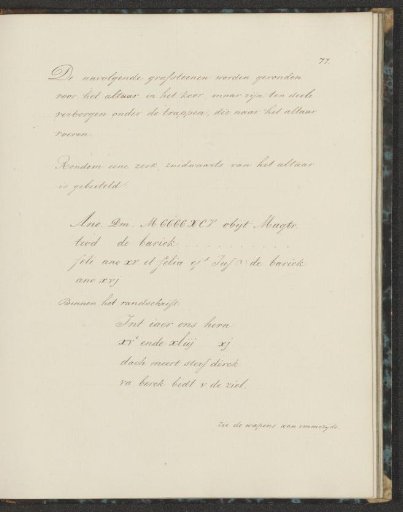 77.
De navolgende grafsteenen worden gevonden
voor het altaar in het koor, maar zijn ten deele
verborgen onder de trappen, die naar het altaar
voeren.
Rondom eene zerk, zuidwaarts van het altaar
is gebeiteld
Ano. Dm. M CCCC XCV obijt Magtr.
teod de barick
filii ano xv et filia ejus de barick
ano xvj
Binnen het randschrift.
Int iaer ons hern
xvc ende xluj xj
dach meert sterf derck
va berck bidt v de ziel
zie de wapens aan ommezijde.